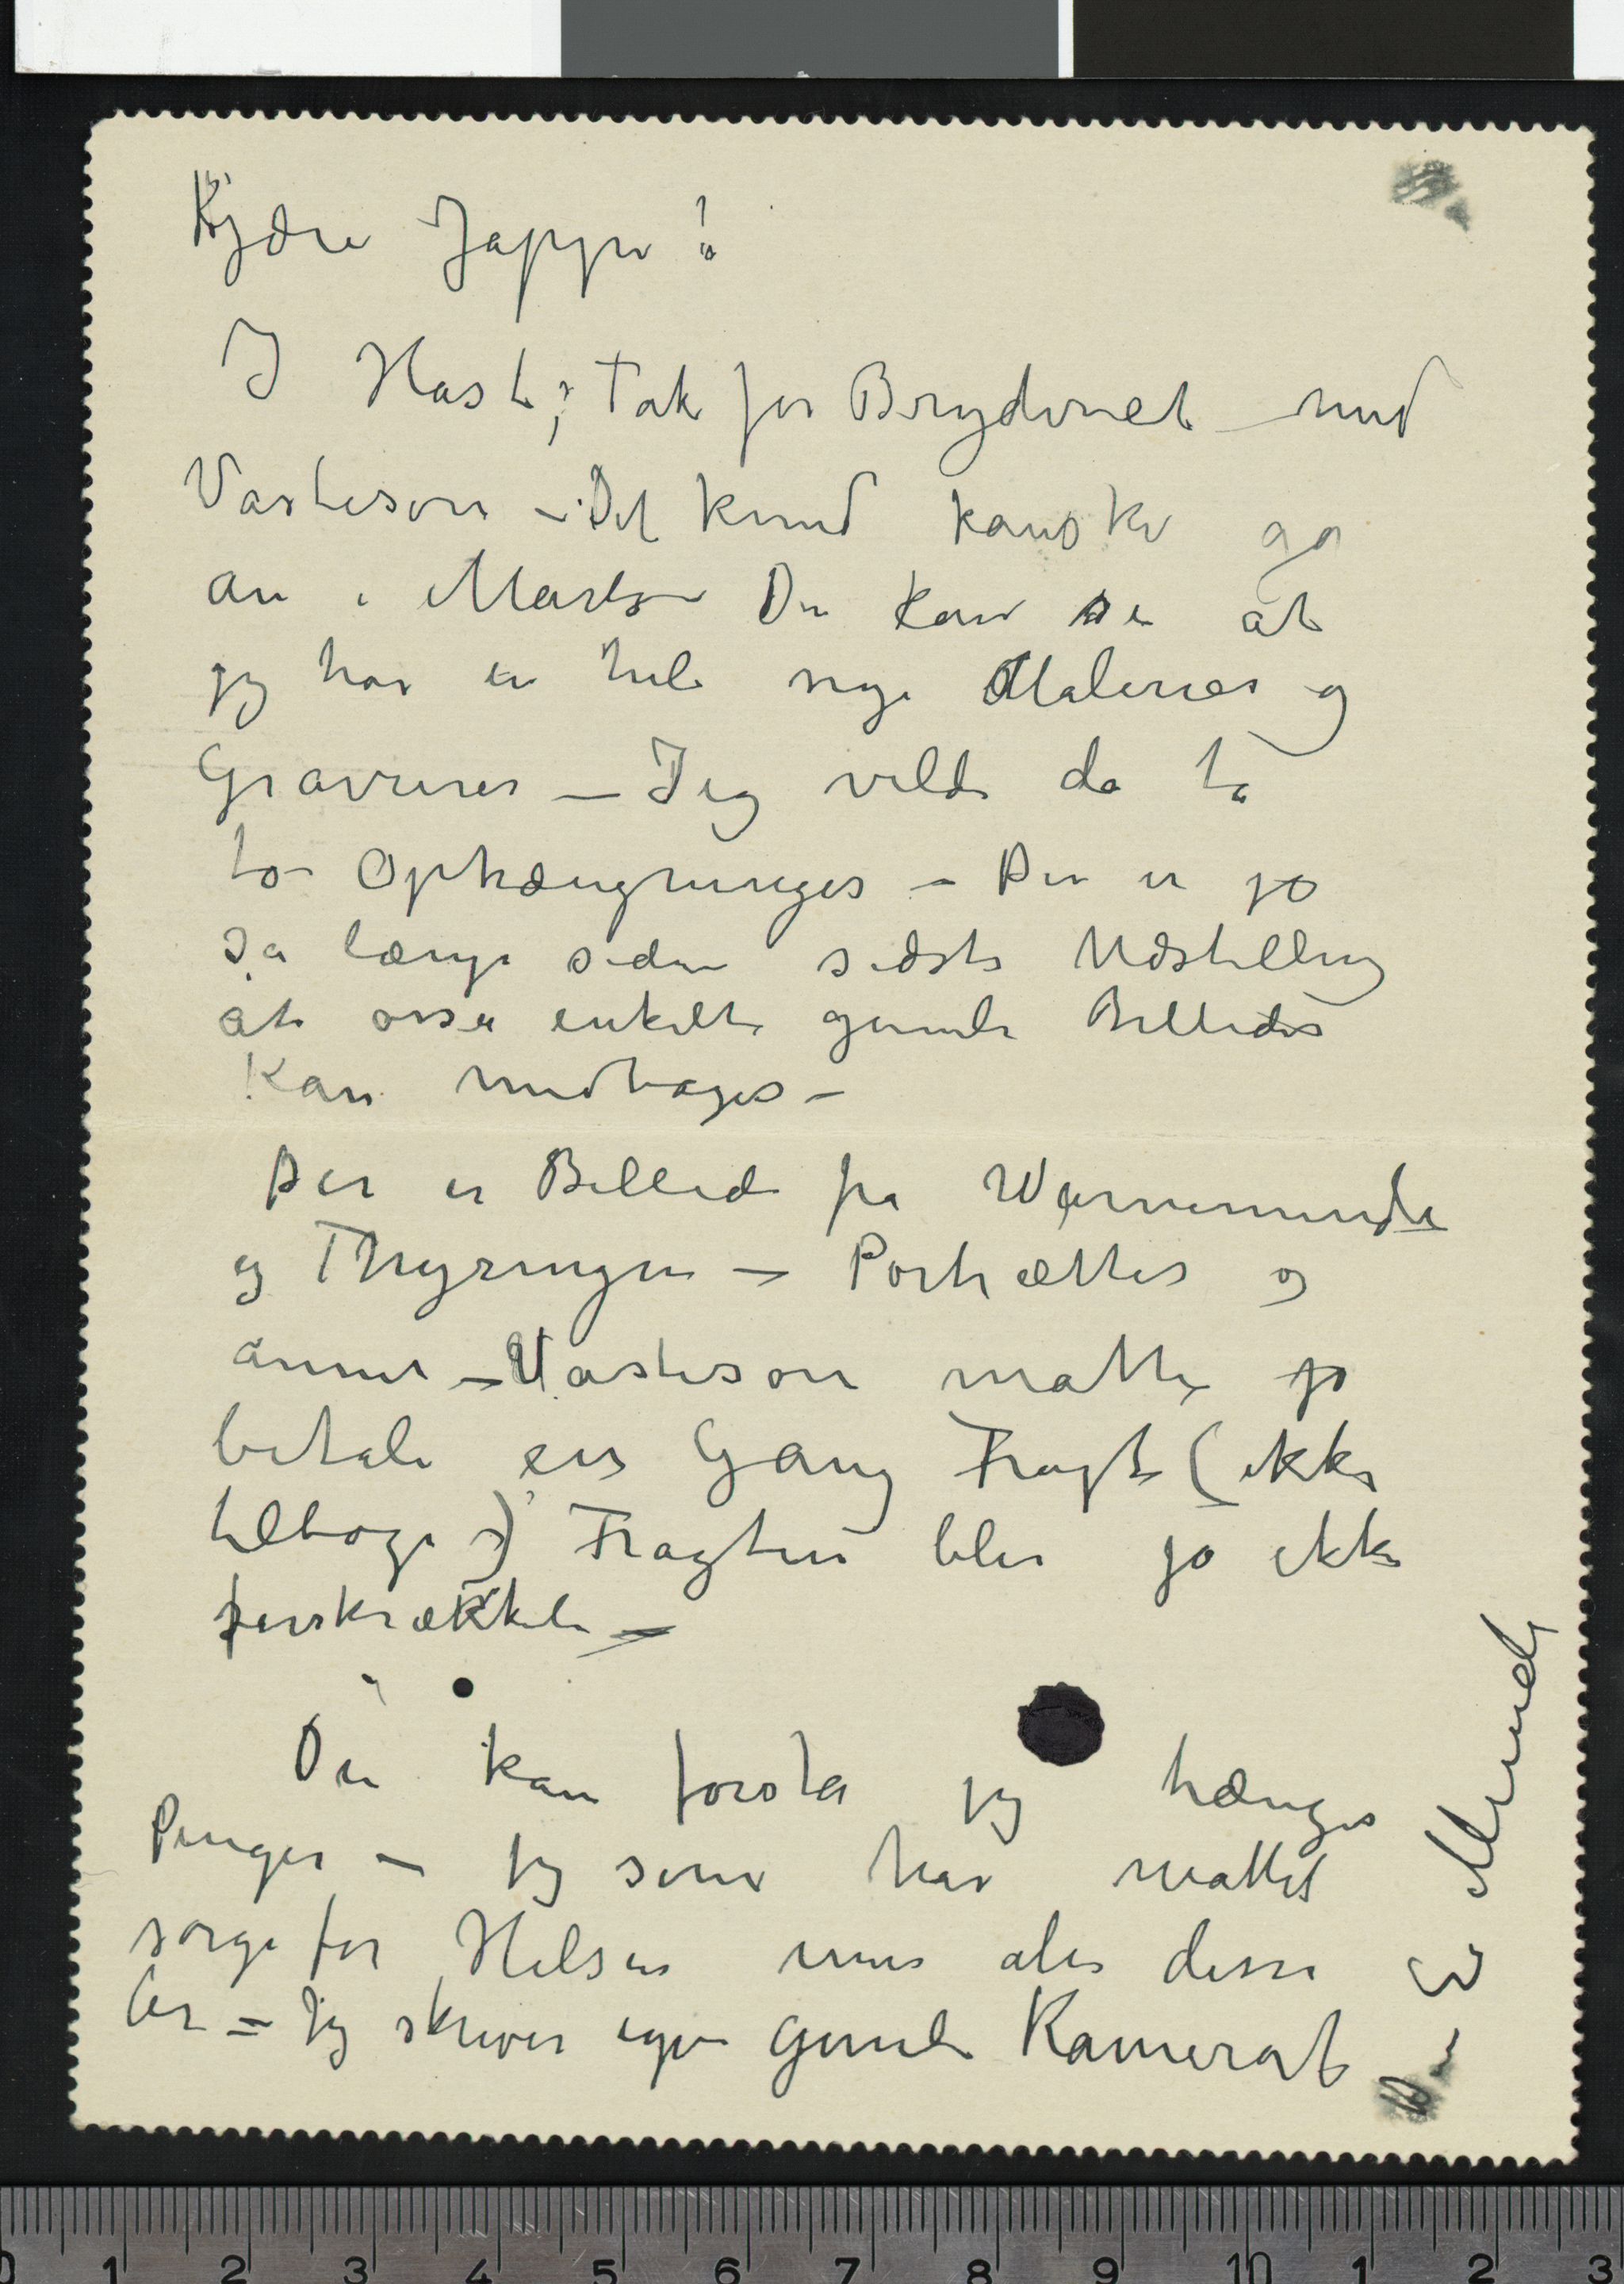 Kjære Jappe!
I Hast; Tak for Bryderiet med
Vasteson – Det kund kanske ga
an i Marts – Du kan se at
jeg har en hel nye Malerier og
Gravurer – Jeg vilde da ta
to Ophængninger – Der er jo
så længe siden sidste Udstilling
at ossa enkelte gamle Billeder
kan medtages –
Der er Billeder fra Warnemünde
og Thyringen – Portrætter og
annet – Vasteson måtte jo
betale en Gang Fragt (ikke
tilbage) Fragten bler jo ikke
forskrækkeli –
Du kan forstå jeg trænger
Penger – jeg som har måttet
sørge for Helsen min alle disse
år – Jeg skriver igjen gamle Kamerat –
E Munch
0 1 2 3 4 5 6 7 8 9 10 1 2 3